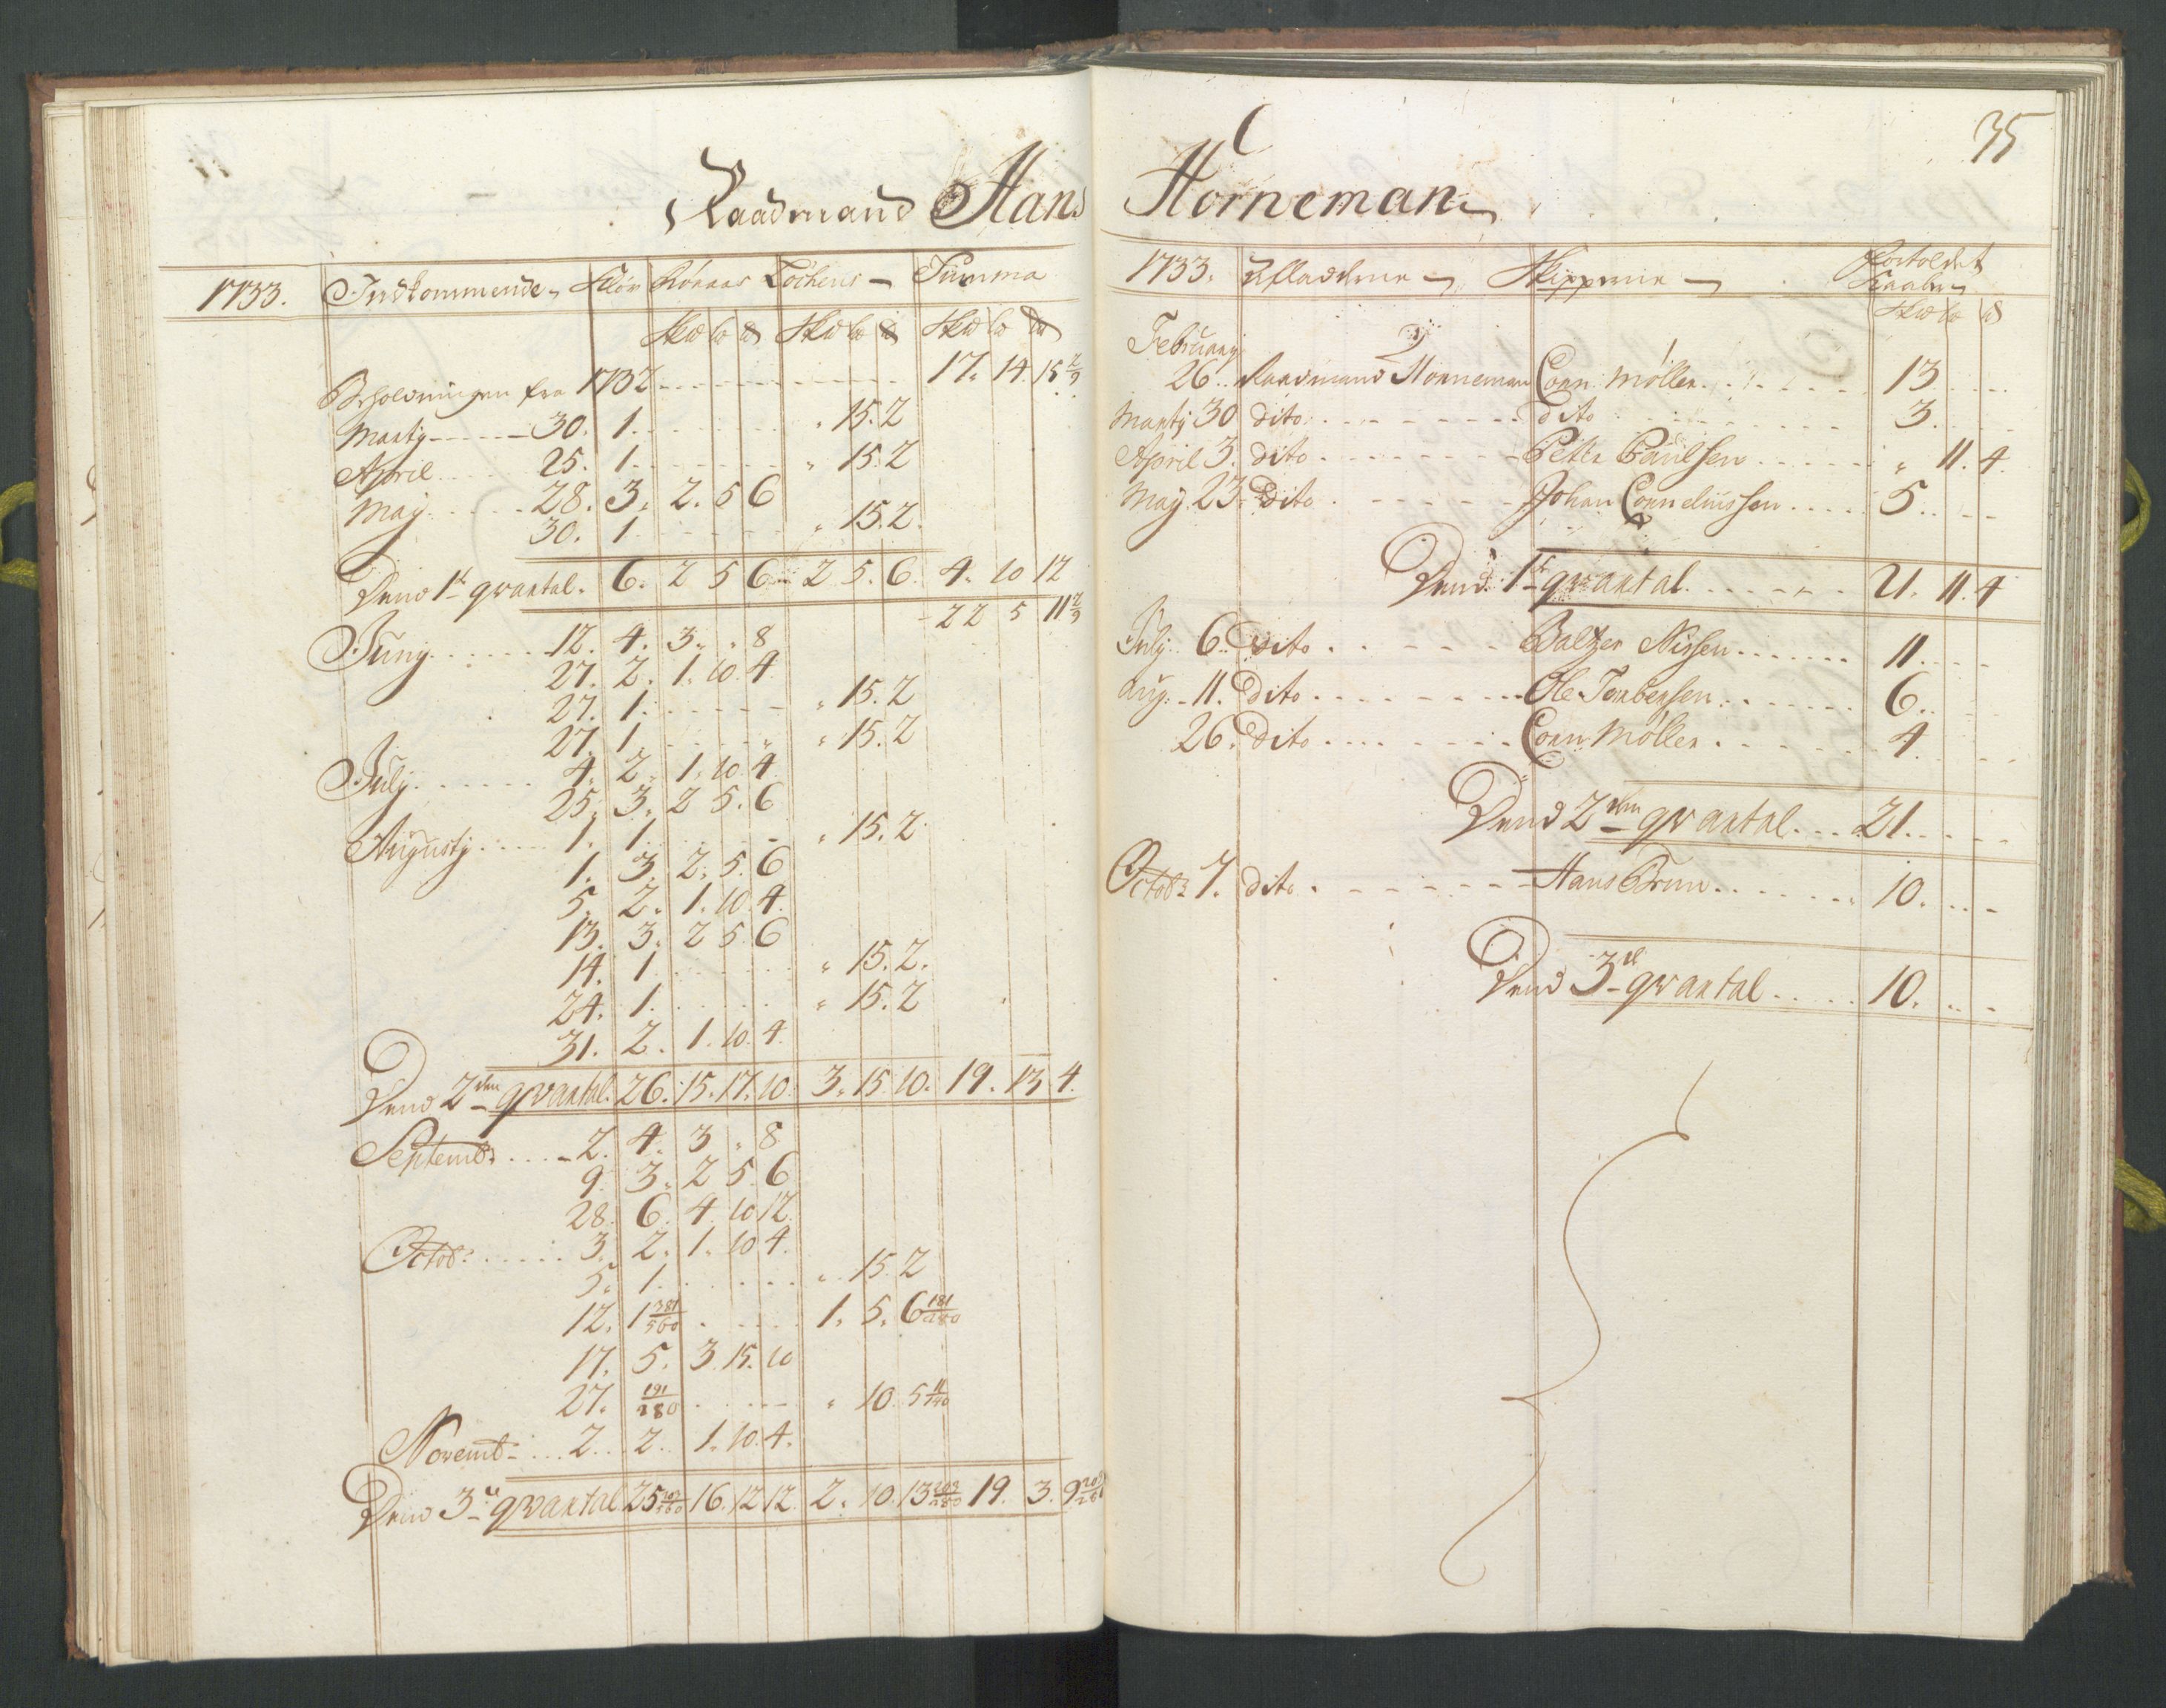 35
Raadmand Hans Horneman
1733. Indkommende Kiør Röraas Löckens Summa
Skd lb ℔ Skd lb ℔ Skd lb ℔
Beholdningen fra 1732 17. 14. 15 2/9
Martÿ 30. 1. " 15. 2
April 25. 1. " 15. 2
Maÿ 28. 3. 2. 5 6
30. 1. " 15. 2.
Dend 1te qvartal. 6. 2 5 6 2 5. 6. 4. 10 12
22 5 11 2/9
Junÿ 12. 4. 3. " 8
27. 2. 1. 10. 4.
27. 1. " 15. 2
27. 1. " 15. 2
Julÿ 4. 2. 1. 10. 4.
25. 3. 2 5. 6
Augustÿ 1. 1. " 15. 2.
1. 3. 2. 5. 6
5. 2. 1. 10. 4.
13. 3. 2 5. 6
14. 1. " 15. 2.
24. 1. " 15. 2
31. 2. 1. 10. 4.
Dend 2den qvartal. 26. 15. 17. 10. 3. 15. 10. 19. 13 4.
Septembr 2. 4. 3 " 8
9. 3. 2 5. 6
28. 6. 4. 10 12.
Octob: 3. 2. 1. 10 4.
5. 1. " 15. 2
12. 1 381/560 1. 5. 6 181/280
17. 5. 3. 15. 10
27. 191/280 " 10. 5
Novemb: 2. 2. 1. 10. 4.
Dend 3die qvartal 25 16. 12 12. 2. 10. 13 203/280 19. 3. 9
1733. Skipperne Fortoldet Kaaber
Skd lb ℔
Februarÿ
26. Raadmand Horneman Corn: Møller 13
Martÿ 30 dito dito 3.
April 3. dito Petter Paulsen " 11. 4.
Maÿ 23. Dito Johan Corneliussen 5.
Dend 1te qvartal 21. 11. 4
Julÿ 6. dito Baltzer Nissen 11
Aug: 11. Dito Ole Torbersen 6.
26. Dito Corn: Møller 4.
Dend 2den qvartal 21.
Octobr 7. dito Hans Brun 10.
Dend 3die qvartal 10.